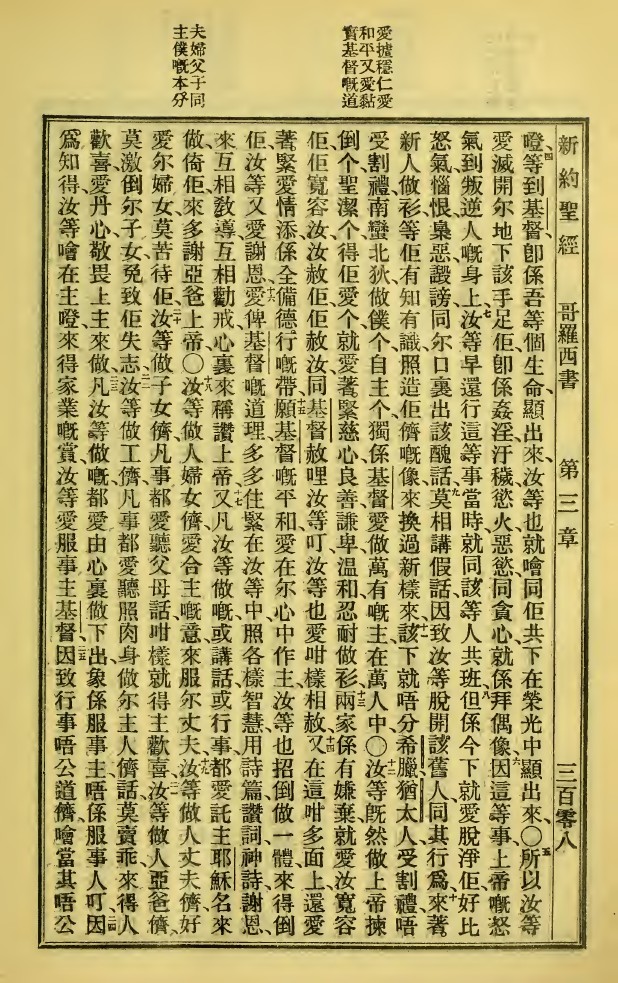 愛據穩仁愛
和平又愛黏
實基督嘅道
夫婦父子同
主僕嘅本分
新約聖經 哥羅西書 第三章 三百零八
四
噔等到基督、卽係吾等個生命、顯出來、汝等也就噲同佢共下在榮光中顯出來、〇五所以汝等
愛滅開尔地下該手足、佢卽係姦淫汙穢慾火惡慾同貪心、就係拜偶像、六因這等事上帝嘅怒
氣到叛逆人嘅身上、七汝等早還行這等事當時就同該等人共班、八但係今下就愛脫淨佢、好比
怒氣惱恨梟惡譭謗同尔口裏出該醜話、九莫相講假話、因致汝等脫開該舊人、同其行爲來、十著
新人做衫等佢有知有識、照造佢儕嘅像來換過新樣來、十一該下就唔分希臘猶太人受割禮唔
受割禮南蠻北狄做僕个自主个、獨係基督愛做萬有嘅主在萬人中、〇十二汝等旣然做上帝揀
倒个聖潔个得佢愛个、就愛著緊慈心良善謙卑温和忍耐做衫、十三兩家係有嫌棄就愛汝寬容
佢佢寬容汝、汝赦佢佢赦汝、同基督赦哩汝等叮、汝等也愛咁樣相赦、十四又在這咁多面上還愛
著緊愛情添、係全備德行嘅帶、十五願基督嘅平和愛在尔心中作主、汝等也招倒做一體來得倒
佢、汝等又愛謝恩、十六愛俾基督嘅道理多多住緊在汝等中、照各樣智慧用詩篇讚詞神詩謝恩、
來互相敎導互相勸戒、心裏來稱讚上帝、十七又凡汝等做嘅或講話或行事都愛託主耶穌名來
做、倚佢來多謝亞爸上帝、〇十八汝等做人婦女儕、愛合主嘅意來服尔丈夫、十九汝等做人丈夫儕、好
愛尔婦女、莫苦待佢、二十汝等做子女儕、凡事都愛聽父母話、咁樣就得主歡喜、二一汝等做人亞爸儕、
莫激倒尔子女、免致佢失志、二二汝等做工儕、凡事都愛聽照肉身做尔主人儕話、莫賣乖來得人
歡喜、愛丹心敬畏上主來做、二三凡汝等做嘅都愛由心裏做下出、象係服事主、唔係服事人叮、二四因
爲知得汝等噲在主噔來得家業嘅賞、汝等愛服事主基督、二五因致行事唔公道儕、噲當其唔公